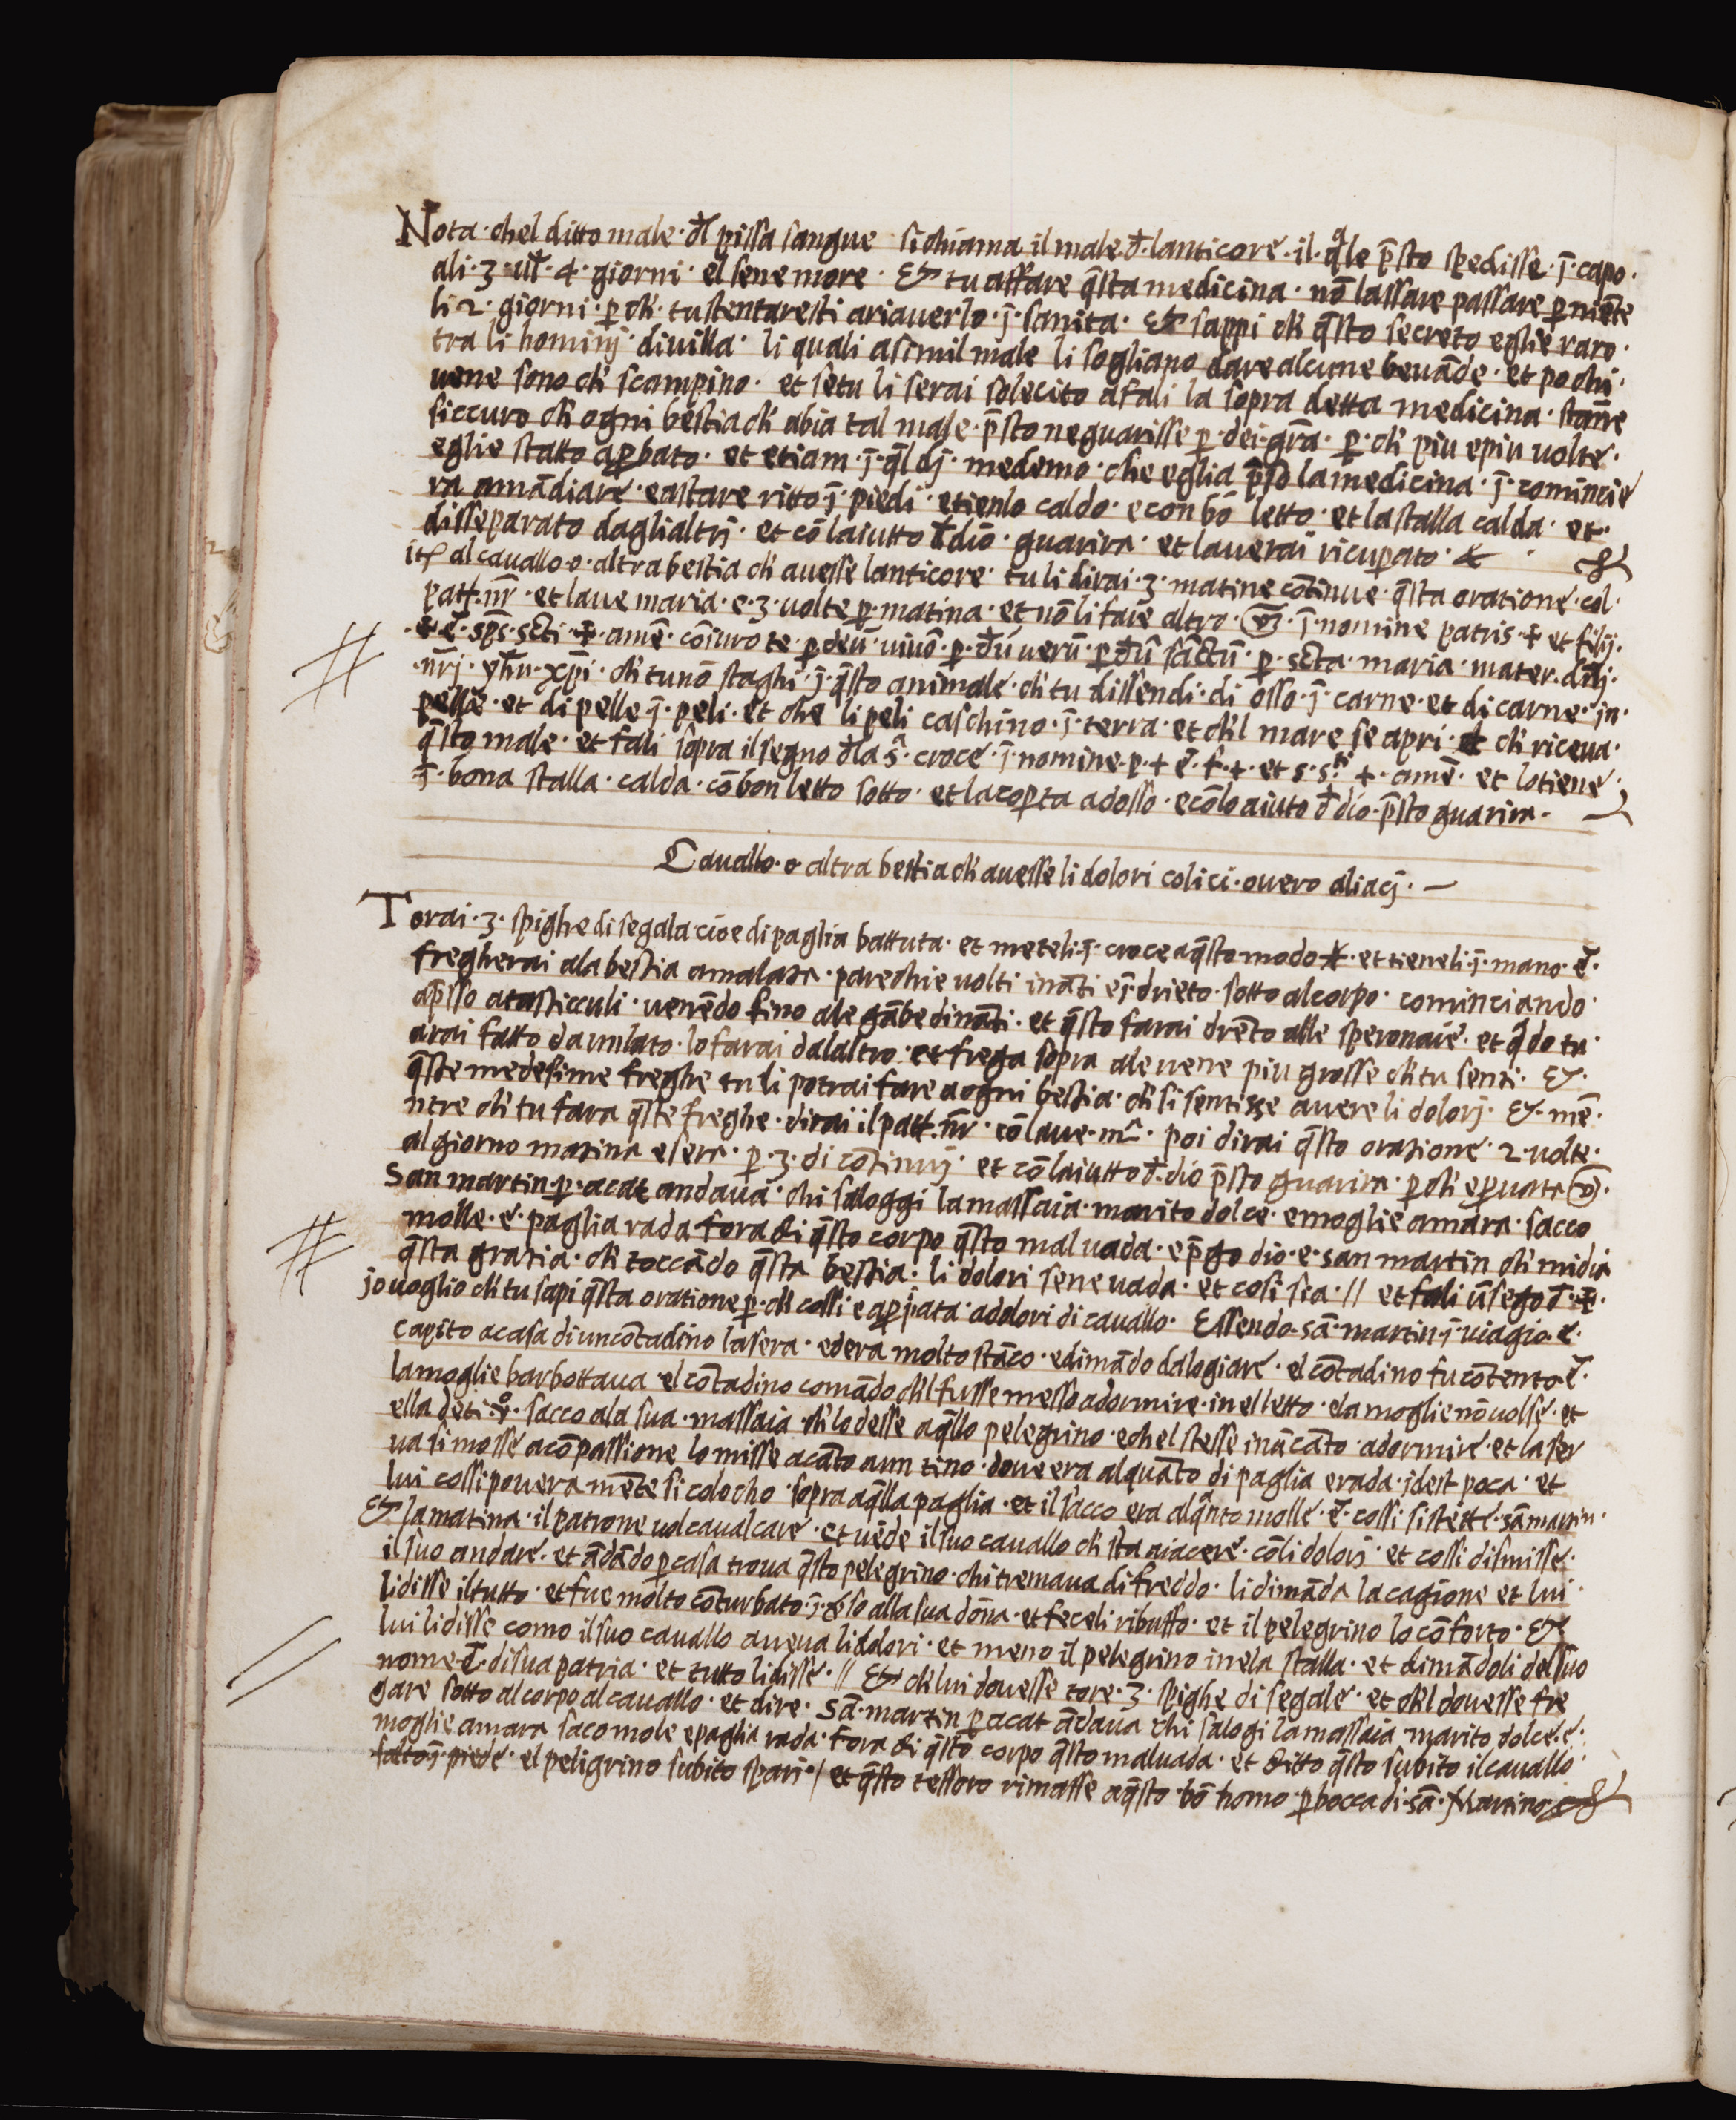 Nota · chel ditto male · đl pissa sangue · si chiama il male · đ · lanticore · il · qle p̄sto spedisse · j̄ · capo ·
ali · 3 · ut̄ · 4 · giorni · el sene more · & tu affare q̄sta medicina · nō lassare passare p niēte
li 2 · giorni · p ch' · tu stentaresti ariaverlo · j̄ · sanita · & sappi ch' q̄sto secreto eglie raro ·
tra li hominj · di villa · li quali a simil male li sogliano dare alcune bevāde · et pochi ·
vene sono ch' scampino · et se tu li serai solecito a fali la sopra detta medicina · starre
siccuro ch' ogni bestia ch' abia tal male · p̄sto ne guarisse p · dei · gr̄a · p · ch' piu e piu volte ·
eglie statto apbato · et etiam · j̄ · q̄l dj · medemo · che eglia p̄so la medicina · j̄ · comincie
ra a māgiare · e a stare ritto · j̄ · piedi · e tienlo caldo · e con bō letto · et la stalla calda · et ·
disseparato daglialtrj · et cō laiutto đ dio · guarira · et laverai ricuprato ·
it al cavallo · o · altra bestia ch' avesse lanticore · tu li dirai · 3 · matine cōtinue · q̄sta oratione · col ·
patt · nr̄ · et lave maria · e · 3 · volte p · matina · et nō li fare altro · j̄ · nomine patris · + et filij ·
+ ē · sp̄s · scti · + · amē · cōjuro te · p deū · vivō · p · đū verū · p đū sāctū · p · scta · maria · mater · dnj ·
nr̄j · yh̄u · xp̄i · ch' tu nō staghi · j̄ · q̄sto animale · ch' tu dissendi · di osso · j̄ · carne · et di carne · in ·
pelle · et di pelle · j̄ · peli · et che li peli caschino · j̄ · terra · et ch'l mare se apri · ch' riceva ·
q̄sto male · et fali sopra il segno đla s · croce · j̄ · nomine · p · + ē · f · + · et s · s + · amē · et lo tiene ·
j̄ · bona stalla · calda · cō bon letto sotto · et la coprta adosso · e cō lo aiuto đ dio · p̄sto guarira ·
Cavallo · o altra bestia ch' avesse li dolori colici · overo aliacj ·
Torai · 3 · spighe di segala cioe di paglia battuta · et meteli · j̄ · croce a q̄sto modo + · et tieneli · j̄ · mano · ē ·
fregherai ala bestia amalata · parechie volti ināti e j̄ drieto · sotto al corpo · cominciando ·
ap̄sso a tasticculi · venēdo fino ale gābe dināti · et q̄sto farai drēto alle speronaie · et q̄do tu ·
arai fatto da un lato · lo farai dalaltro · et frega sopra ale vene piu grosse ch' tu senti · & ·
q̄ste medesime freghe tu li potrai fare a ogni bestia · ch' si sentisse avere li dolorj · & · mē ·
ntre ch' tu fara q̄ste freghe · dirai il patt · nr̄ · cō lave · m · poi dirai q̄sto oratione · 2 · volte ·
al giorno matina e sera · p · 3 · di cōtinuj · et cō laiutto đ · dio p̄sto guarira · p ch' e pvata
San martin · p · acat andava · chi sal oggi la massaia · marito dolce · e moglie amara · sacco
molle · e · paglia rada fora di q̄sto corpo q̄sto mal vada · e p̄go dio · e · san martin ch' mi dia
q̄sta gratia · ch' toccādo q̄sta bestia · li dolori sene vada · et cosi sia · // et fali ū segno đ · + ·
jo voglio ch' tu sapi q̄sta oratione p · ch' cossi e apata · a dolori di cavallo · Essendo · sā · martin · j̄ · viagio · e ·
capito a casa di un cōtadino la sera · ed era molto stāco · e dimādo dalogiare · el cōtadino fu cōtento · ē ·
la moglie barbottava el cōtadino comādo ch'l fusse messo a dormire · in el letto · e la moglie nō volse · et
ella deti · sacco ala sua · massaia · ch' lo desse a q̄llo pelegrino · e chel stesse in ū cāto · adormire · et la ser
va si mosse a cōpassione lo misse acāto a un tino · dove era alquāto di paglia e rada · idest poca · et
lui cossi povera mēte si colocho · sopra a q̄lla paglia · et il sacco era alq̄nto molle · ē · cossi si stette · sā martin ·
& la matina · il patrone vol cavalcare · et vēde il suo cavallo ch' sta a iacere · cō li dolorj · et cossi dismisse ·
il suo andare · et ādādo p casa trova q̄sto pelegrino · chi tremava di freddo · li dimāda la cagione et lui ·
li disse il tutto · et fue molto cōturbato · j̄ · so alla sua dōna · et feceli ribuffo · et il pelegrino lo cōforto · &
lui li disse como il suo cavallo aveva li dolori · et meno il pelegrino in ela stalla · et dimādoli del suo
nome · ē · di sua patria · et tutto li disse · // & ch' lui dovesse tore · 3 · spighe di segale · et ch'l dovesse fre
gare sotto al corpo al cavallo · et dire · sā · martin p acat ādava chi sal ogi la massaia marito dolce · e ·
moglie amara saco mole e paglia rada · fora di q̄sto corpo q̄sto mal vada · et ditto q̄sto subito il cavallo ·
salto · j̄ · piede · el peligrino subito sparj · / et q̄sto tessoro rimasse a q̄sto bō homo · p bocca di · sā · Martino